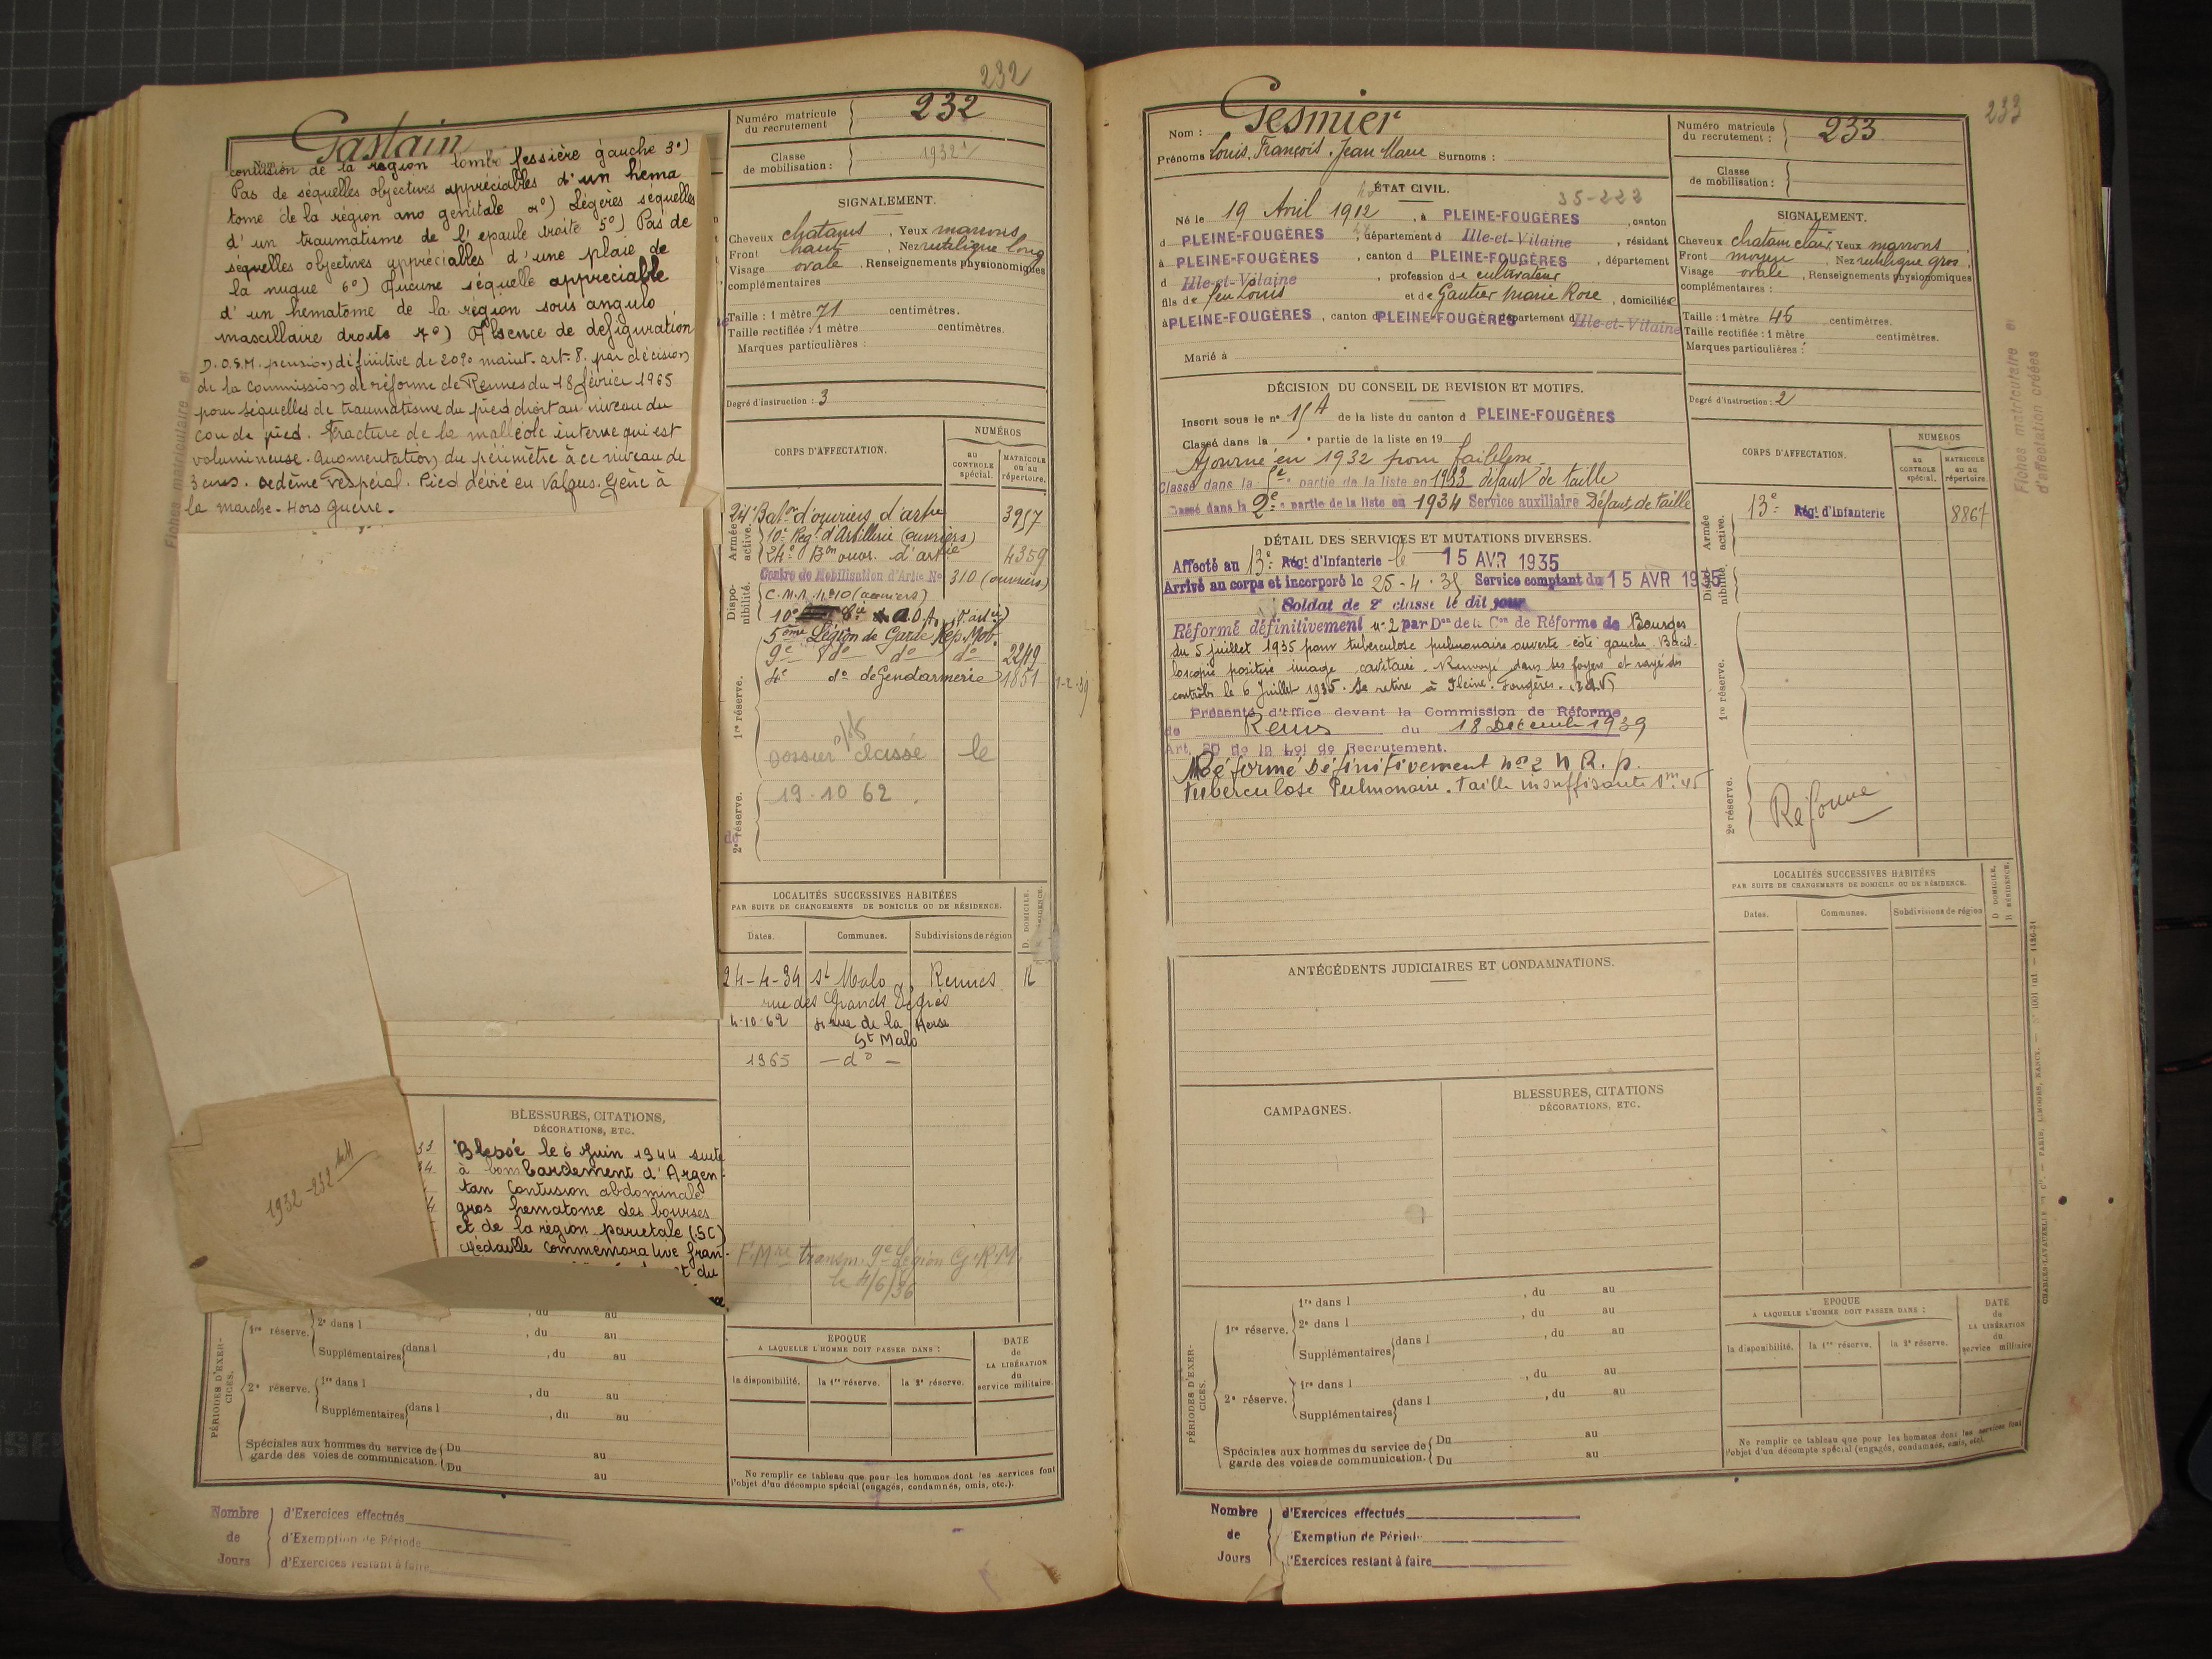 232
Gastain
Nom
contusion de la région lombo fessière gauche 3°)
Pas de séquelles objectives appréciables d'un héma
tome de la région ano genitale 4°) Légères séquelles
d'un traumatisme de l'epaule droite 5°) Pas de
séquelles objectives appréciables d'une plaie de
la nuque 6°) Aucune séquelle appreciable
d'un hematome de la région sous angulo
maxillaire droite 7°) Absence de défiguration
D.O.S.M. pension définitive de 20% maint. art. 8. par décision
de la Commission de réforme de Rennes du 18 février 1965
pour séquelles de traumatisme du pied droit au niveau du
cou de pied. Fracture de la malléole interne qui est
volumineuse. Augmentation du périmètre à ce niveau de
3 cms. oedème vespéral. Pied dévié en Valgus. Gêne à
la marche - Hors Guerre.
Fiches matriculaire et
1932-232
BLESSURES, CITATIONS,
DÉCORATIONS, ETC.
Blessé le 6 Juin 1944 suite
à bombardement d'Argen-
tan Contusion abdominale
gros hematome des bourses
et de la région parietale (SC)
Médaille commemorative fran-
PÉRIODES D'EXER-
CICES.
1re réserve.
2e dans l , du au
Supplémentaires dans l , du au
2e réserve.
1re dans l , du au
Supplémentaires dans l , du au
Spéciales aux hommes du service de
garde des voies de communication.
Du au
Du au
Nombre de Jours
d'Exercices effectués
d'Exemption de Période
d'Exercices restant à faire
Numéro matricule
du recrutement
232
Classe
de mobilisation :
1932
SIGNALEMENT.
Cheveux chatains , Yeux marrons
Front haut , Nez rectiligne long
Visage ovale , Renseignements physionomiques
complémentaires
Taille : 1 mètre 71 centimètres.
Taille rectifiée : 1 mètre centimètres.
Marques particulières :
Degré d'instruction : 3
CORPS D'AFFECTATION.
NUMÉROS
AU CONTROLE spécial.
MATRICULE ou au répertoire.
Armée active.
24e Baton d'ouriers d'artie 3957
10e Reg. d'Artillerie (ouvriers)
24e Bon ouvr. d'artie 4359
Dispo-
nibilité.
Centre de Mobilisation d'Artie No 310 (ouvriers)
5ème Légion de Garde Rep. Mob.
9e do do do 2249
4e do de Gendarmerie 1851
1re réserve.
Dossier classé le
19-10 62
2e réserve.
LOCALITÉS SUCCESSIVES HABITÉES
PAR SUITE DE CHANGEMENTS DE DOMICILE OU DE RÉSIDENCE.
Dates. Communes. Subdivisions de région
D. DOMICILE.
24-4-34 St Malo Rennes R
rue des Grands Degrés
4-10-62 rue de la Herse
St Malo
1965 - do -
F. Mle transm. 9e Légion G.R.M.
le 4/6/36
EPOQUE
A LAQUELLE L'HOMME DOIT PASSER DANS :
la disponibilité. la 1re réserve. la 2e réserve.
DATE
de
LA LIBÉRATION
du
service militaire.
Ne remplir ce tableau que pour les hommes dont les services font
l'objet d'un décompte spécial (engagés, condamnés, omis, etc.).
233
Nom : Gesmier
Prénoms Louis, François, Jean Marie Surnoms :
ÉTAT CIVIL.
35-222
Né le 19 Avril 1912 , à PLEINE-FOUGÈRES , canton
d PLEINE-FOUGÈRES , département d Ille-et-Vilaine , résidant
à PLEINE-FOUGÈRES , canton d PLEINE-FOUGÈRES , département
d Ille-et-Vilaine , profession de cultivateur
fils de feu Louis et de Gautier Marie Rose , domiciliés
à PLEINE-FOUGÈRES , canton d PLEINE-FOUGÈRES département d Ille-et-Vilaine
Marié à
DÉCISION DU CONSEIL DE REVISION ET MOTIFS.
Inscrit sous le no 15 A de la liste du canton d PLEINE-FOUGÈRES
Classé dans la e partie de la liste en 19
Ajourné en 1932 pour faiblesse
Classé dans la partie de la liste en 1933 défaut de taille
Classé dans la 2e partie de la liste en 1934 Service auxiliaire Défaut de taille
DÉTAIL DES SERVICES ET MUTATIONS DIVERSES.
Affecté au 13e Régt d'Infanterie le 15 AVR 1935
Arrivé au corps et incorporé le 25-4-35 Service comptant du 15 AVR 1935
Soldat de 2e classe le dit jour
Réformé définitivement no 2 par Don de la Con de Réforme de Bourges
du 5 juillet 1935 pour tuberculose pulmonaire ouverte côté gauche. Bacil-
loscopie positive image cavitaire. Renvoyé dans ses foyers et rayé des
contrôles le 6 Juillet 1935. Se retire à Pleine-Fougères.
Présenté d'office devant la Commission de Réforme
de Reims du 18 Décembre 1939
Art. 20 de la Loi de Recrutement.
Réformé Définitivement no 2 N R. p.
tuberculose Pulmonaire. Taille insuffisante 1m.45
ANTÉCÉDENTS JUDICIAIRES ET CONDAMNATIONS.
CAMPAGNES.
BLESSURES, CITATIONS
DÉCORATIONS, ETC.
PÉRIODES D'EXER-
CICES.
1re réserve.
1re dans l , du au
2e dans l , du au
Supplémentaires dans l , du au
2e réserve.
1re dans l , du au
Supplémentaires dans l , du au
Spéciales aux hommes du service de
garde des voies de communication.
Du au
Du au
Nombre de Jours
d'Exercices effectués
Exemption de Période
l'Exercices restant à faire
Numéro matricule
du recrutement :
233
Classe
de mobilisation :
SIGNALEMENT.
Cheveux chatain clair, Yeux marrons
Front moyen , Nez rectiligne gros,
Visage ovale , Renseignements physionomiques
complémentaires :
Taille : 1 mètre 46 centimètres.
Taille rectifiée : 1 mètre centimètres.
Marques particulières :
Degré d'instruction : 2
CORPS D'AFFECTATION.
NUMÉROS
AU CONTROLE spécial.
MATRICULE ou au répertoire.
Armée active.
13e Régt d'Infanterie 8867
1re réserve.
2e réserve.
Réformé
Fiches matriculaire et
d'affectation créées
LOCALITÉS SUCCESSIVES HABITÉES
PAR SUITE DE CHANGEMENTS DE DOMICILE OU DE RÉSIDENCE.
Dates. Communes. Subdivisions de région
D DOMICILE.
R RÉSIDENCE.
EPOQUE
A LAQUELLE L'HOMME DOIT PASSER DANS :
la disponibilité. la 1re réserve. la 2e réserve.
DATE
de
LA LIBÉRATION
du
service militaire
Ne remplir ce tableau que pour les hommes dont les services font
l'objet d'un décompte spécial (engagés, condamnés, omis, etc).